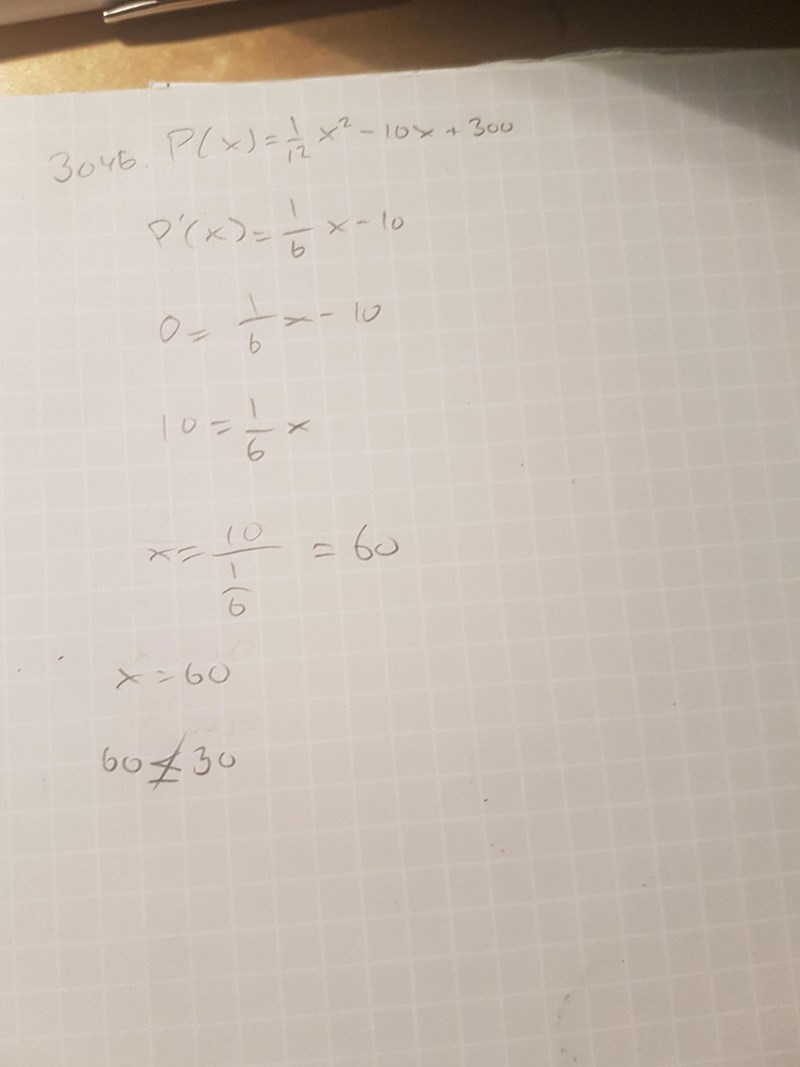 3046. P(x) = 1/12 x² - 10x + 300
P'(x) = 1/6 x - 10
0 = 1/6 x - 10
10 = 1/6 x
x = 10/(1/6) = 60
x = 60
60 ≰ 30